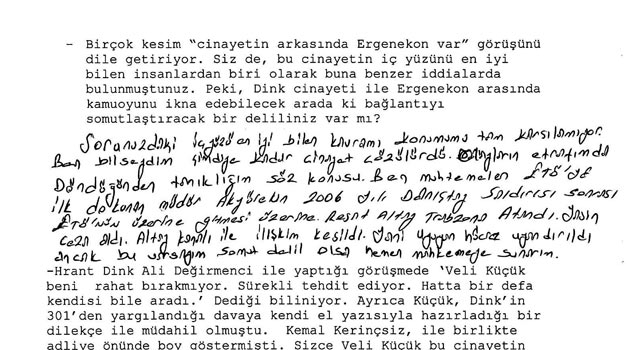 - Birçok kesim “cinayetin arkasında Ergenekon var” görüşünü
dile getiriyor. Siz de, bu cinayetin iç yüzünü en iyi
bilen insanlardan biri olarak buna benzer iddialarda
bulunmuştunuz. Peki, Dink cinayeti ile Ergenekon arasında
kamuoyunu ikna edebilecek arada ki bağlantıyı
somutlaştıracak bir deliliniz var mı?
Sorunuzdaki iç yüzü en iyi bilen kavramı konumumu tam karşılamıyor.
Ben bilseydim şimdiye kadar cinayet çözülürdü. etrafında
Döndüğünden tanıklığım söz konusu. Ben muhtemelen ETÖ'ye
ilk dokunan müdür Akyürekin 2006 yılı Danıştay Saldırısı sonrası
ETÖ'nün üzerine gitmesi üzerine. Reşat Altay Trabzona Atandı. Yasin
ceza aldı. Altay kanalı ile ilişkim kesildi. Yani uyuyan hücre uyandırıldı
ancak bu somut delil olsa hemen mahkemeye sunarım.
-Hrant Dink Ali Değirmenci ile yaptığı görüşmede ‘Veli Küçük
beni rahat bırakmıyor. Sürekli tehdit ediyor. Hatta bir defa
kendisi bile aradı.’ Dediği biliniyor. Ayrıca Küçük, Dink’in
301’den yargılandığı davaya kendi el yazısıyla hazırladığı bir
dilekçe ile müdahil olmuştu. Kemal Kerinçsiz, ile birlikte
adliye önünde boy göstermişti. Sizce Veli Küçük bu cinayetin